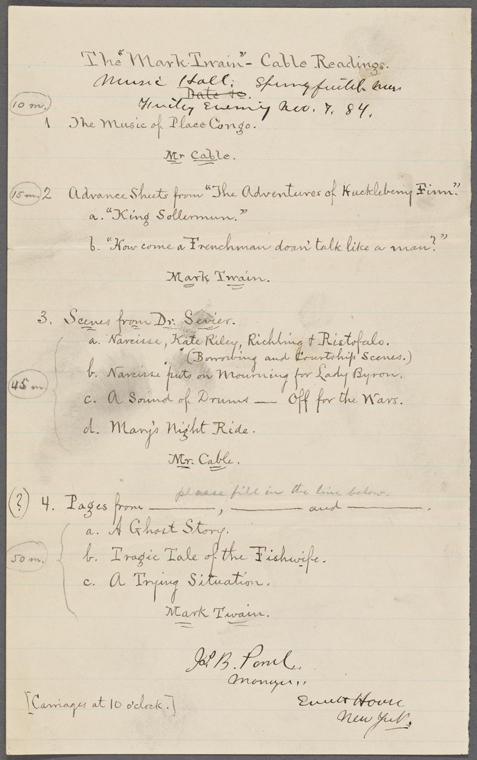 The "Mark Twain" - Cable Readings.
Music Hall. Springfield, Mass
Date to.
Friday Evening Nov. 7, 84.
10 m.
1 The Music of Place Congo.
Mr Cable.
15 m. 2 Advance Sheets from "The Adventures of Huckleberry Finn."
a. "King Sollermun."
b. "How come a Frenchman doan' talk like a man?"
Mark Twain.
3. Scenes from Dr. Sevier.
a. Narcisse, Kate Riley, Richling & Ristofalo.
(Borrowing and Courtship Scenes.)
b. Narcisse puts on Mourning for Lady Byron.
45 m.
c. A Sound of Drums — Off for the Wars.
d. Mary's Night Ride.
Mr. Cable.
please fill in the line below.
(?) 4. Pages from ———, ——— and ———.
a. A Ghost Story.
50 m.
b. Tragic Tale of the Fishwife.
c. A Trying Situation.
Mark Twain.
J. B. Pond.
Manager.
[Carriages at 10 o'clock.]
Everett House
New York.